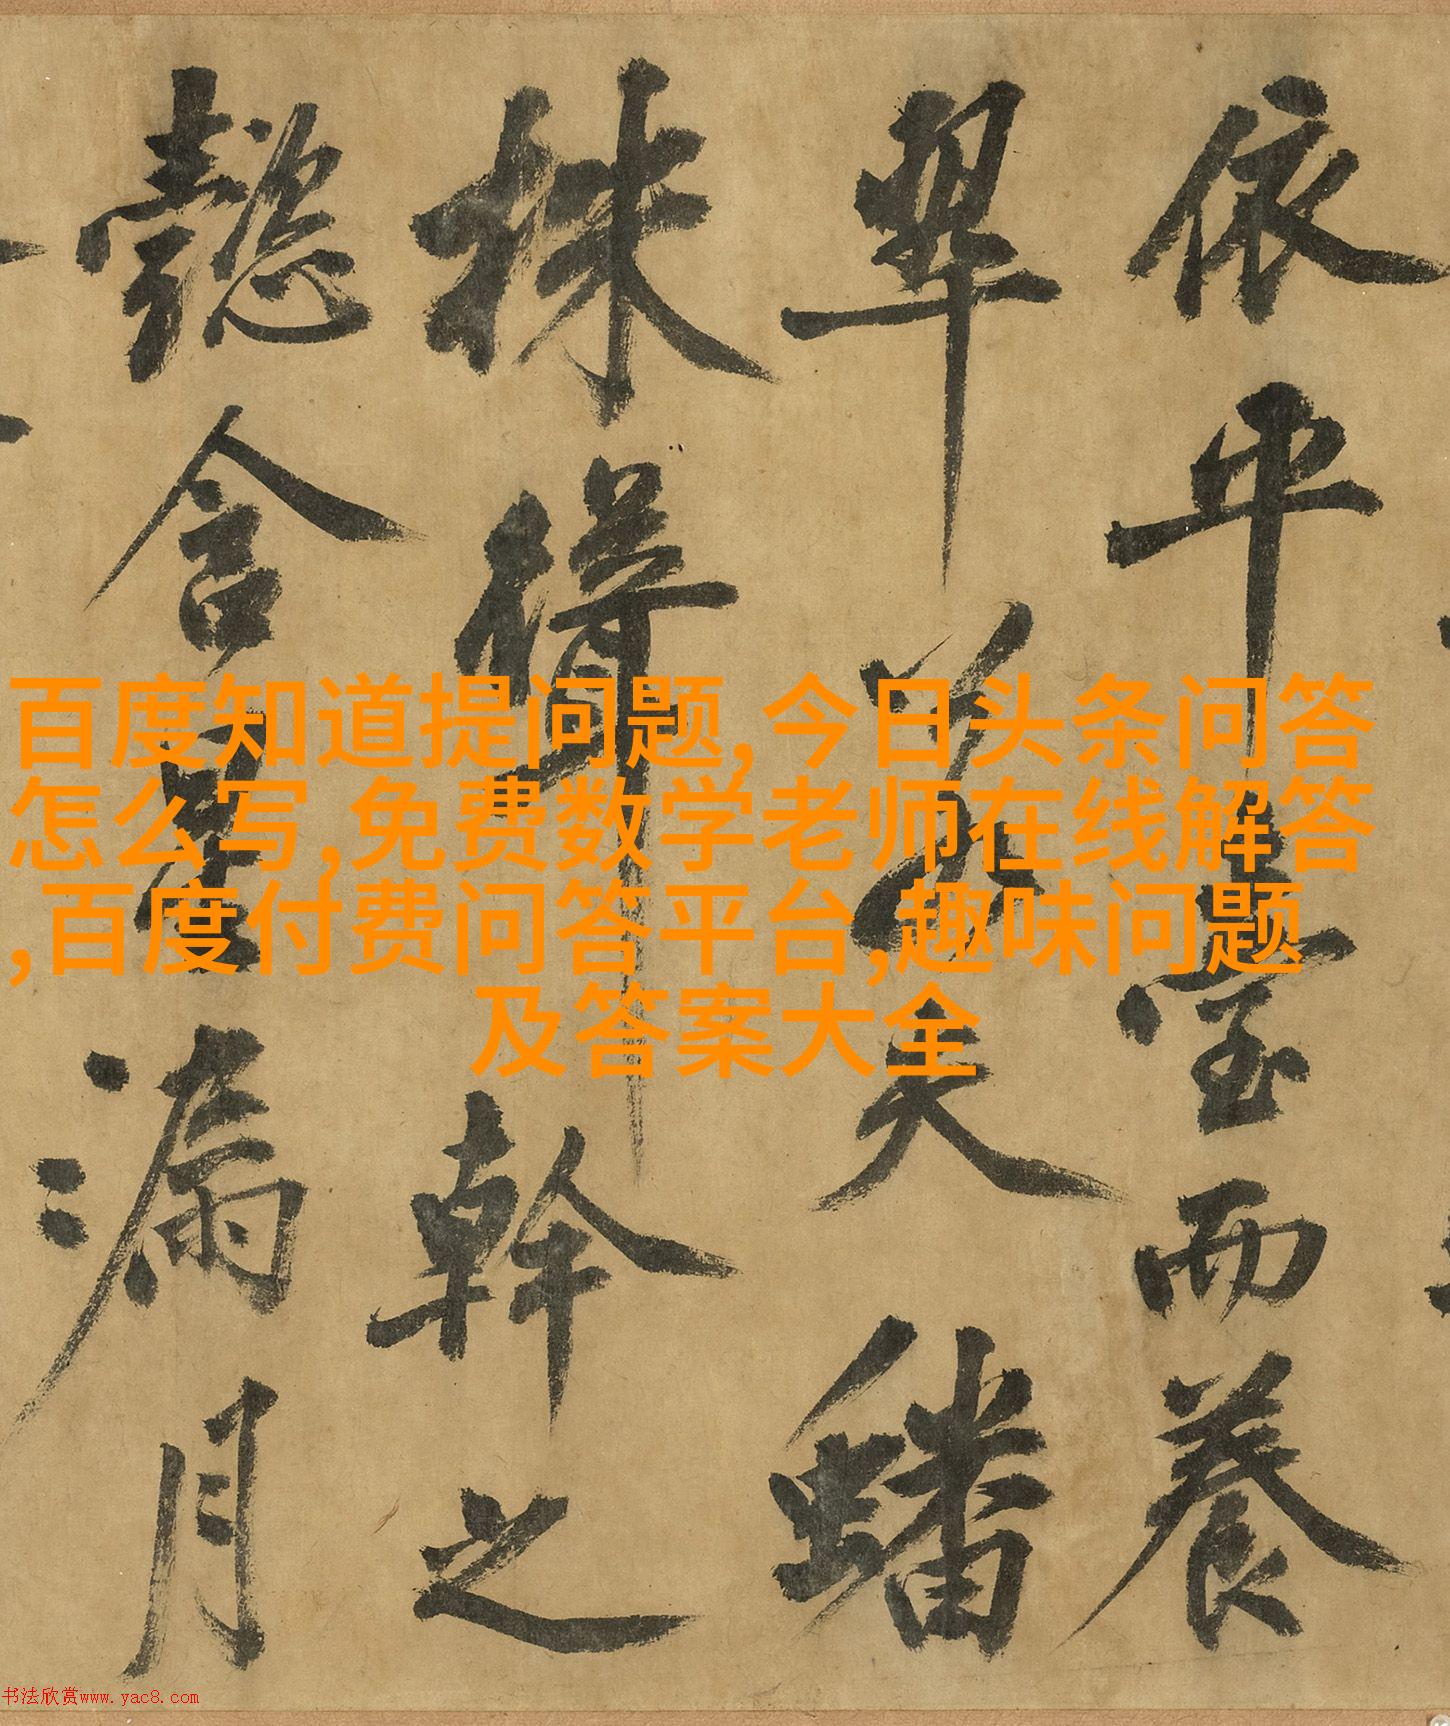 依平臺而養
翠若夫蟠
株得幹之
懿含星漏月
百度知道提问题,今日头条问答
怎么写,免费数学老师在线解答
,百度付费问答平台,趣味问题
及答案大全
书法欣赏www.yac8.com